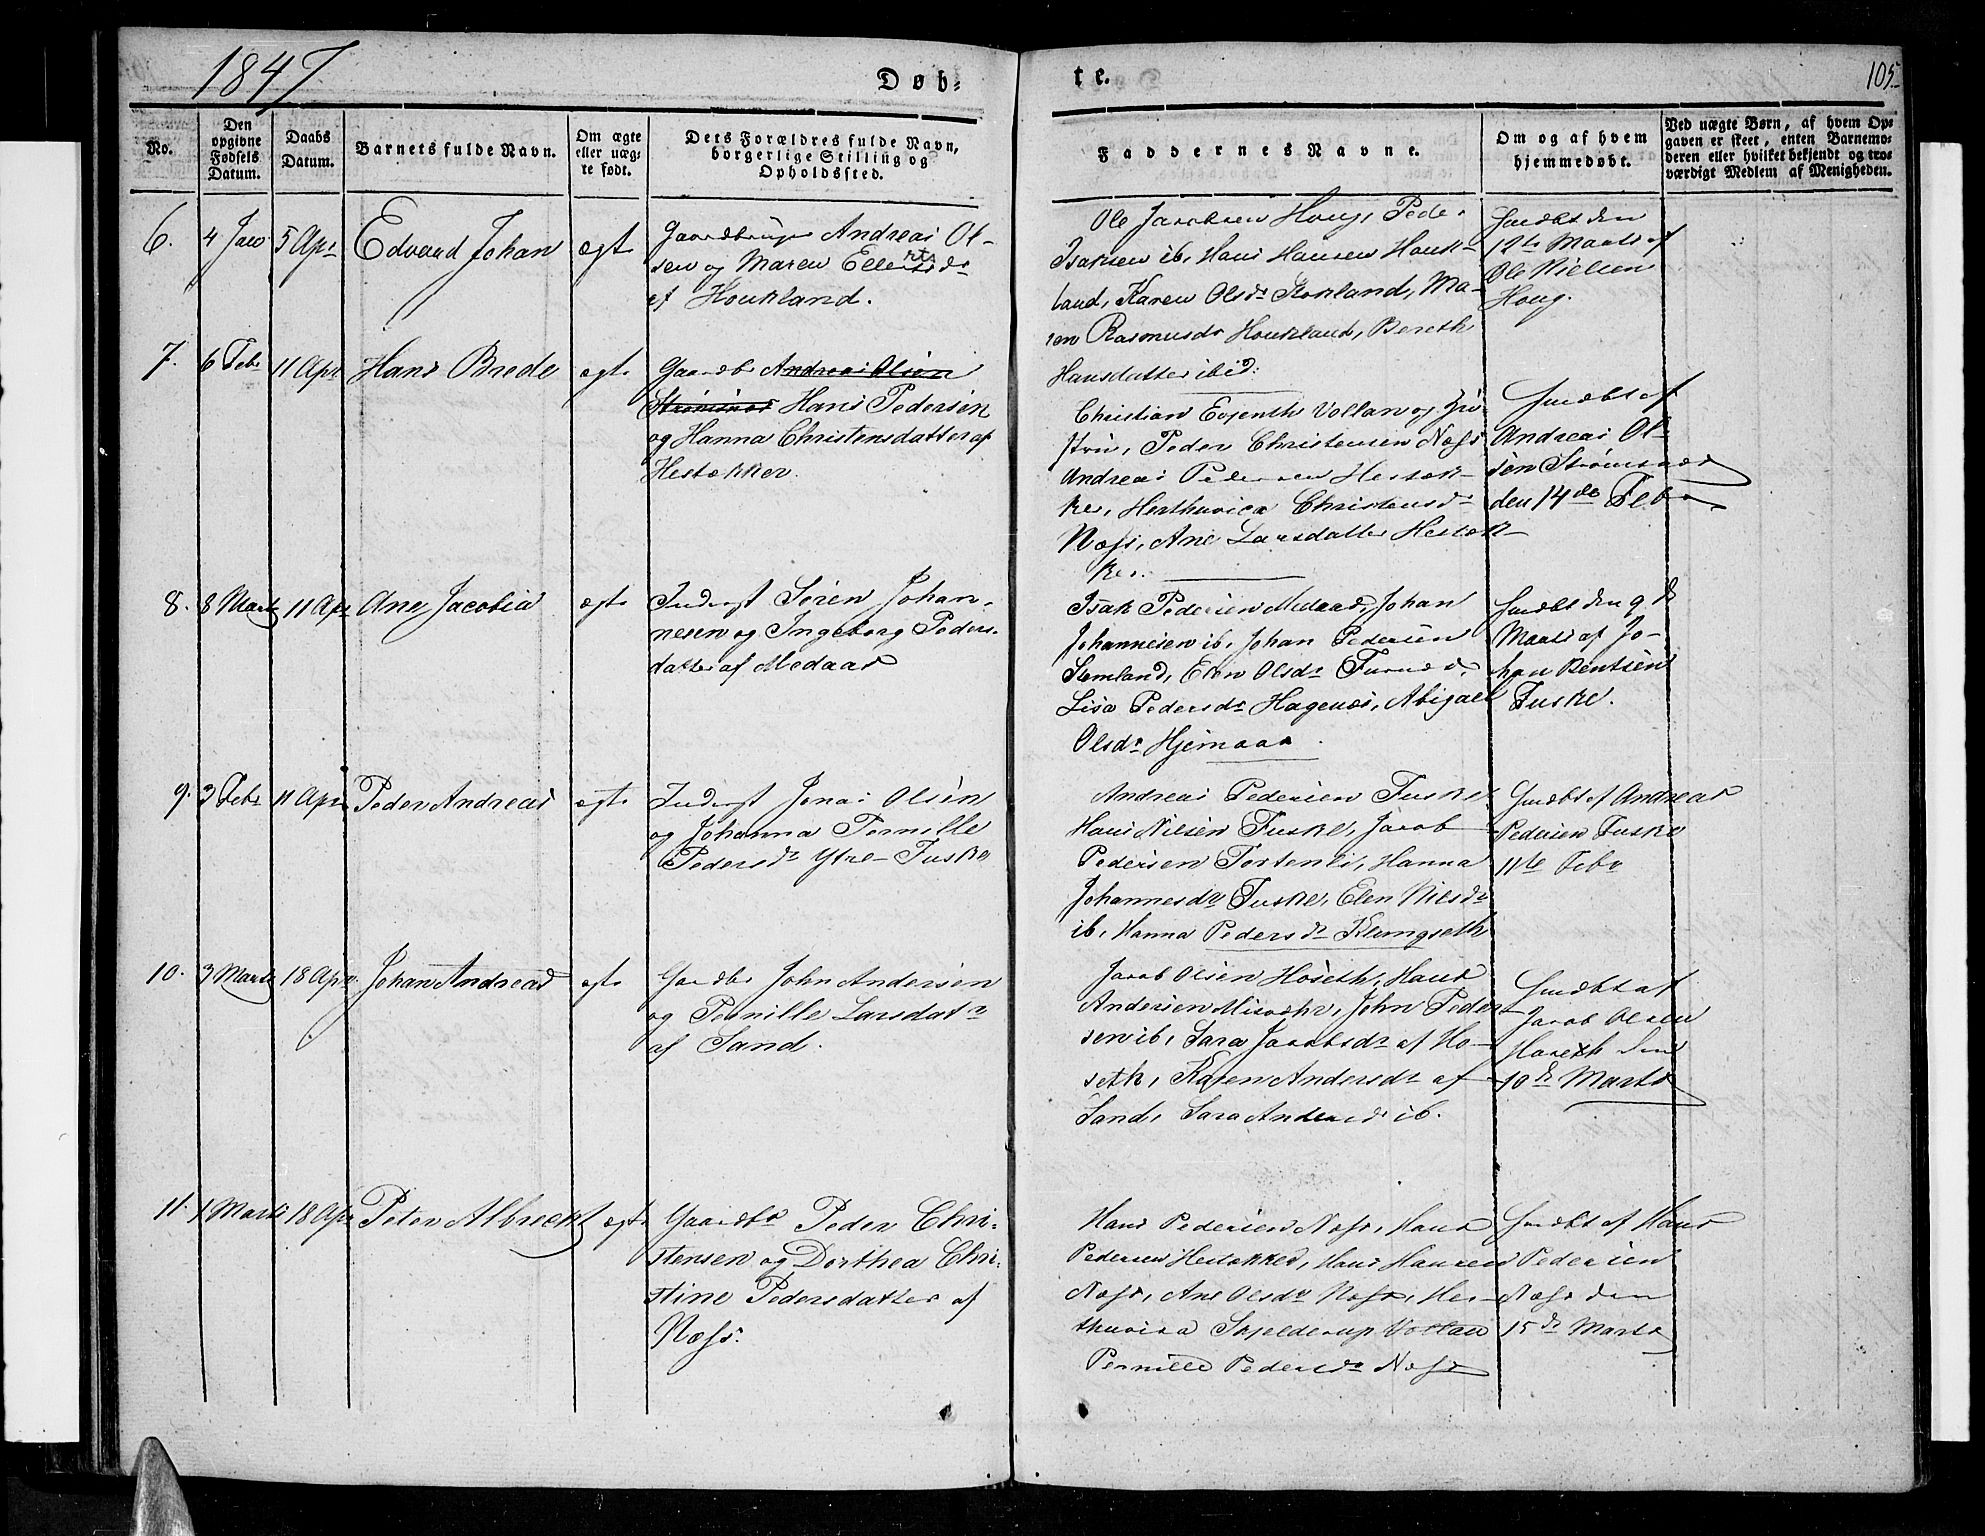 1847
Døb-
te.
105
No.
Den opgivne Fødsels Datum.
Daabs Datum.
Barnets fulde Navn.
Om ægte eller uæg-te født.
Dets Forældres fulde Navn, borgerlige Stilling og Opholdssted.
Faddernes Navne.
Om og af hvem hjemmedøbt.
Ved uægte Børn, af hvem Op-gaven er skeet, enten Barnemo-deren eller hvilket bekjendt og tro-værdigt Medlem af Menigheden.
6. 4 Jan 5 Apr Edvard Johan ægte
Gaardbruger Andreas Ol-
sen og Maren Ellertsdr
af Houkland.
Ole Jacobsen Houg, Peder
Isaksen ib, Hans Hansen Houk-
land, Karen Olsdr Stokland, Ma-
ren Rasmusdr Houkland, Bereth
Hansdatter ibid:
hmdøbt den
12te Marts af
Ole Nielsen
Houg.
7. 6 Febr 11 Apr Hans Brede ægte
Gaardbr Andreas Olsen
Strømsnes Hans Pedersen
og Hanna Christensdatter af
Hestækker.
Christian Evjenth Vollan og Hu-
stru, Peder Christensen Næss
Andreas Pedersen Hestæk-
ker, Herthuvica Christensdr
Næss, Ane Larsdatter Hestæk-
ker.
hmdøbt af
Andreas Ol-
sen Strømsnæs
den 14de Febr
8. 8 Marts 11 Apr Ane Jacobia ægte
Inderst Søren Johan-
nesen og Ingeborg Peders-
datter af Medaas
Isak Pedersen Medaas, Johan
Johannesen ib, Johan Pedersen
Stemland, Elen Olsdr
Lisa Pedersdr Hagenæs, Abigael
Olsdr Hjemaas.
hmdøbt den 9de
Marts af Jo-
han Bentsen
Fuske.
9. 3 Febr 11 Apr Peder Andreas ægte
Inderst Jonas Olsen
og Johanna Pernille
Pedersdr Ytre-Fuske
Andreas Pedersen Fuske
Hans Nilsen Fuske, Jacob
Pedersen Tortenli, Hanna
Johannesdr Fuske, Elen Nilsdr
ib, Hanna Pedersdr Klungseth
hmdøbt af Andreas
Pedersen Fuske
11te Febr
10. 3 Marts 18 Apr. Johan Andreas ægte
Gaardbr John Andersen
og Pernille Larsdatr
af Sand.
Jacob Olsen Hoseth, Hans
Andersen Misvær, John Peder-
sen ib, Sara Jacobsdr af Ho-
seth, Karen Andersdr af
Sand, Sara Andersdr ib.
hmdøbt af
Jacob Olsen
Hoseth den
10de Marts
11. 1 Marts 18 Apr Peter Albrecht ægte
Gaardbr Peder Chri-
stensen og Dorthea Chri-
stine Pedersdatter af
Næss.
Hans Pedersen Næss, Hans
Pedersen Hestækker, Hans Hansen
Næss, Ane Olsdr Næss, Her-
thuvica Skjelderup Vollan
Pernille Pedersdr Næss
hmdøbt af Hans
Pedersen
Næss den
15de Marts